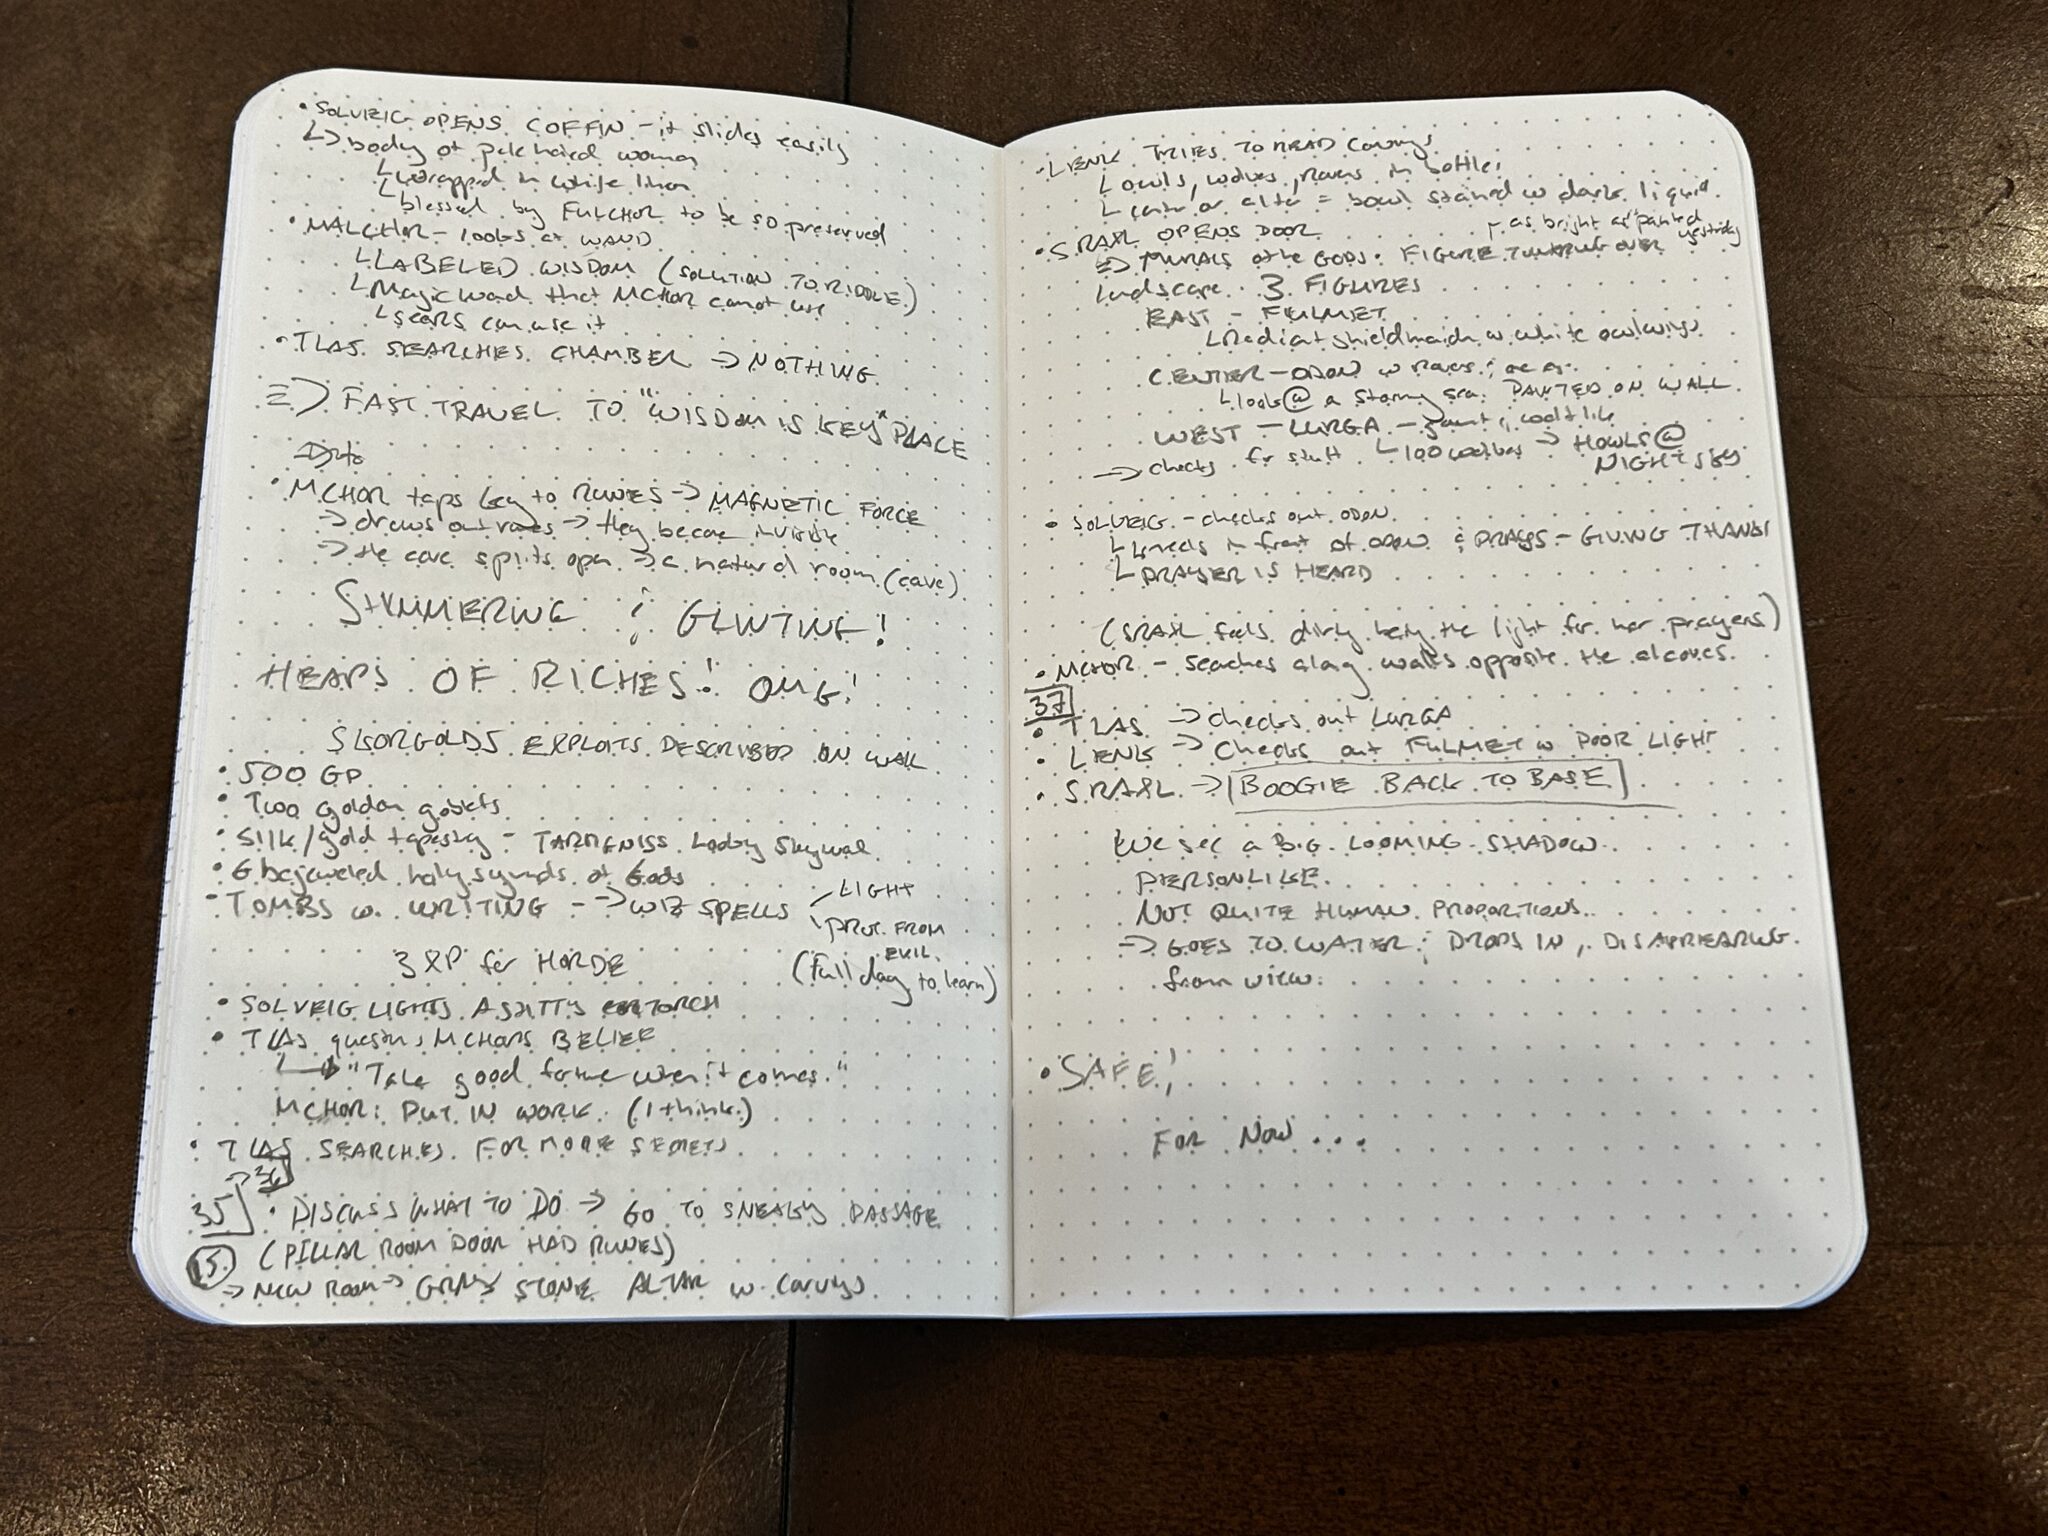 • SOLVEIG OPENS COFFIN - it slides easily
↳ body of pale haired woman
↳ wrapped in white linen
↳ blessed by FULCHOR to be so preserved
• MALCHOR - looks at WAND
↳ LABELED WISDOM (SOLUTION TO RIDDLE)
↳ Magic wand that MCHOR cannot use
↳ seers can use it
• TLAS SEARCHES CHAMBER → NOTHING
⇒ FAST TRAVEL TO "WISDOM IS KEY" PLACE
• MCHOR taps key to RUNES → MAGNETIC FORCE
→ draws out runes → they become invisible
→ the cave splits open → a natural room (cave)
SHIMMERING & GLINTING!
HEAPS OF RICHES! OMG!
SKORGOLDS EXPLOITS DESCRIBED ON WALL
• 500 GP
• Two golden goblets
• Silk/gold tapestry -
• 6 bejeweled holy symbols of Gods
- TOMBS w. WRITING - → WIZ SPELLS
LIGHT
PROT. FROM EVIL
3 XP for HORDE
(full day to learn)
• SOLVEIG LIGHTS A SHITTY TORCH
• TLAS questions MCHORS BELIEF
↳ "Take good fortune when it comes."
MCHOR: PUT IN WORK. (I think.)
• TLAS SEARCHES FOR MORE SECRETS
→ 36
35 • DISCUSS WHAT TO DO → GO TO SNEAKY PASSAGE
15. (PILLAR ROOM DOOR HAD RUNES)
→ NEW ROOM → GRAY STONE ALTAR w. Carvings
• LIENK TRIES TO READ Carvings
↳ owls, wolves, ravens in battle
↳ center of altar = bowl stained w dark liquid
• SRAXL OPENS DOOR
as bright as "painted yesterday
⇒ MURALS of the GODS. FIGURE TOWERING OVER
landscape. 3 FIGURES
EAST - FULMET
↳ Radiant shieldmaiden w white owl wings
CENTER - ODON w ravens
↳ looks @ a stormy sea. PAINTED ON WALL
WEST - LURGA - gaunt & wolflike
→ checks for stuff ↳ 100 wolves → HOWLS @ NIGHT SKY
• SOLVEIG - checks out ODON
↳ kneels in front of ODON & PRAYS - GIVING THANKS
↳ PRAYER IS HEARD
(SRAXL feels dirty being the light for her prayers)
• MCHOR - Searches along walls opposite the alcoves.
37
• TLAS → checks out LURGA
• LIENK → Checks out FULMET w POOR LIGHT
• SRAXL → BOOGIE BACK TO BASE
We see a BIG LOOMING SHADOW.
PERSONLIKE.
NOT QUITE HUMAN PROPORTIONS.
→ GOES TO WATER & DROPS IN, DISAPPEARING
from view.
• SAFE!
FOR NOW...